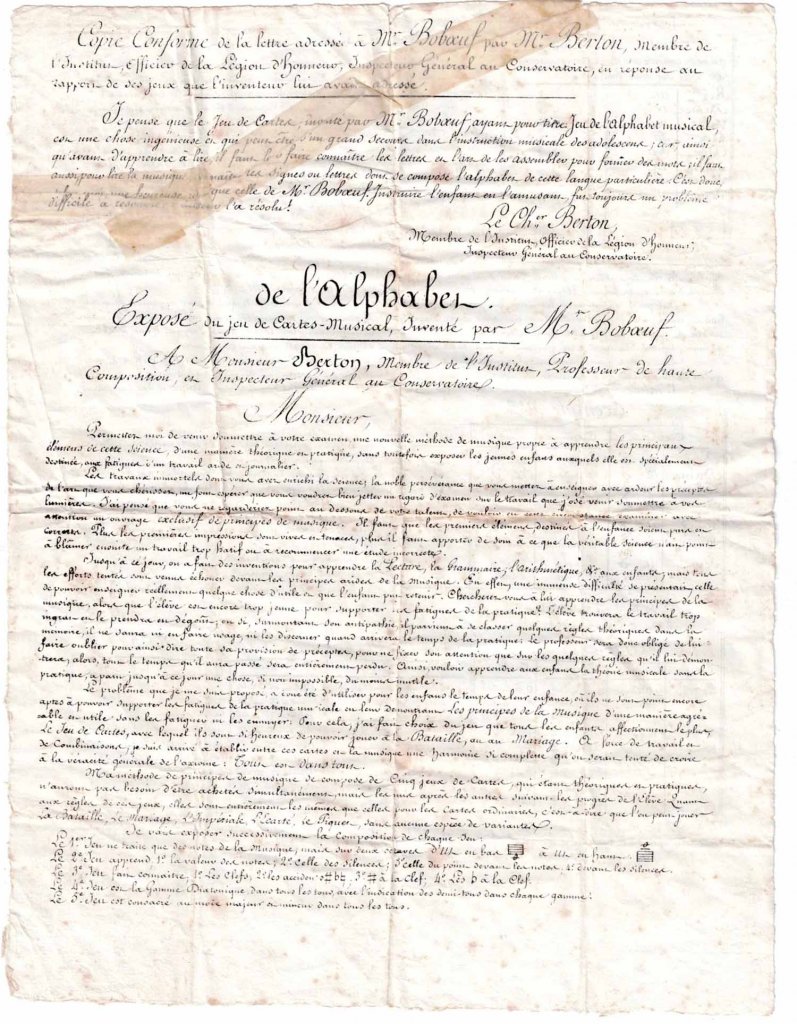 Copie Conforme de la lettre adressée à Mr. Bobœuf par Mr. Berton, Membre de
l'Institut, Officier de la Légion d'Honneur, Inspecteur Général au Conservatoire, en réponse au
rapport de ses jeux que l'inventeur lui avait adressé.
Je pense que le Jeu de Cartes, inventé par Mr. Bobœuf, ayant pour titre Jeu de l'alphabet musical,
est une chose ingénieuse et qui peut être d'un grand secours dans l'instruction musicale des adolescens; car ainsi
qu'avant d'apprendre à lire, il faut faire connaître les lettres et l'art de les assembler pour former des mots, il faut
aussi pour lire la musique connaître les signes ou lettres dont se compose l'alphabet de cette langue particulière. C'est donc
une heureuse idée que celle de Mr. Bobœuf. Instruire l'enfant en l'amusant fut toujours un problème
difficile à résoudre l'a résolu!
Le Cher. Berton,
Membre de l'Institut, Officier de la Légion d'Honneur,
Inspecteur Général au Conservatoire.
de l'alphabet.
Exposé du jeu de Cartes-Musical, Inventé par Mr. Bobœuf.
A Monsieur Berton, Membre de l'Institut, Professeur de haute
Composition, et Inspecteur Général au Conservatoire.
Monsieur,
Permettez moi de venir soumettre à votre examen une nouvelle méthode de musique propre à apprendre les principaux
élémens de cette science, d'une manière théorique et pratique, sans toutefois exposer les jeunes enfans auxquels elle est spécialement
destinée, aux fatigues d'un travail aride et journalier.
Les travaux immortels dont vous avez enrichi la science; la noble persévérance que vous mettez à enseigner avec ardeur les préceptes
de l'art que vous chérissez, me font espérer que vous voudrez bien jetter un regard d'examen sur le travail que j'ose venir soumettre à vos
lumières. J'ai pensé que vous ne regarderiez point au dessous de votre talent, de vouloir en cette circonstance examiner avec
attention un ouvrage exclusif de principes de musique. Il faut que les premiers élémens destinés à l'enfance soient purs et
corrects. Plus les premières impressions sont vives et tenaces, plus il faut apporter de soin à ce que la véritable science n'ait point
à blâmer ensuite un travail trop hatif ou à recommencer une étude incorrecte.
Jusqu'à ce jour, on a fait des inventions pour apprendre la Lecture, la Grammaire, l'Arithmétique, &a. aux enfants; mais tous
les efforts tentés sont venus échouer devant les principes arides de la musique. En effet, une immense difficulté se présentait, celle
de pouvoir enseigner réellement quelque chose d'utile et que l'enfant put retenir. Chercherez vous à lui apprendre les principes de la
musique, alors que l'élève est encore trop jeune pour supporter les fatigues de la pratique? L'élève trouvera le travail trop
ingrat et le prendra en dégoût; ou si, surmontant son antipathie, il parvient à se classer quelques règles théoriques dans la
mémoire, il ne saura ni en faire usage, ni les discerner quand arrivera le temps de la pratique. Le professeur sera donc obligé de lui
faire oublier pour ainsi dire toute sa provision de préceptes, pour ne fixer son attention que sur les quelques règles qu'il lui démon-
trera, alors, tout le temps qu'il aura passé sera entièrement perdu. Ainsi, vouloir apprendre aux enfans la théorie musicale sans la
pratique, a paru jusqu'à ce jour une chose, si non impossible, du moins inutile.
Le problème que je me suis proposé, a donc été d'utiliser pour les enfans le temps de leur enfance, où ils ne sont point encore
aptes à pouvoir supporter les fatigues de la pratique musicale en leur démontrant les principes de la musique d'une manière agré-
able et utile sans les fatiguer ni les ennuyer. Pour cela, j'ai fait choix du jeu que tous les enfants affectionnent le plus,
Le Jeu de Cartes, avec lequel ils sont si heureux de pouvoir jouer à la Bataille, ou au Mariage. A force de travail et
de Combinaisons, je suis arrivé à établir entre ces cartes et la musique une harmonie si complète qu'on serait tenté de croire
à la véracité générale de l'axiome: Tout est dans tout.
Ma méthode de principes de musique se compose de Cinq jeux de Cartes, qui étant théoriques et pratiques,
n'auront pas besoin d'être achetés simultanément, mais les uns après les autres suivant les progrès de l'Elève. Quant
aux règles de ces jeux, elles sont entièrement les mêmes que celles pour les cartes ordinaires, c'est-à-dire que l'on peut jouer
La Bataille, Le Mariage, L'Impériale, L'Ecarté, le Piquet, sans aucune espèce de variantes.
Je vais exposer successivement la composition de chaque Jeu:
Le 1er. Jeu ne traite que des notes de la Musique, mais sur deux octaves d'Ut en bas à Ut en haut
Le 2e. Jeu apprend 1º. la valeur des notes; 2º. Celle des silences; 3º. celle du point devant les notes, 4º. devant les silences.
Le 3e. Jeu fait connaître, 1º. Les Clefs, 2º. les accidens ♯♭♮, 3º. ♯ à la Clef; 4º. Les ♭ à la Clef.
Le 4e. Jeu est la Gamme Diatonique dans tous les tons, avec l'indication des demi-tons dans chaque gamme.
Le 5e. Jeu est consacré au mode majeur et mineur dans tous les tons.